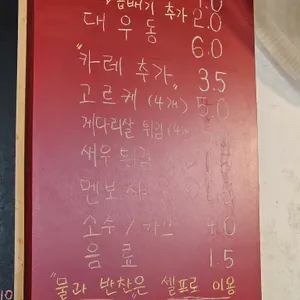 곱배기 추가 1.0
대우동 2.0
6.0
"카레 추가" 3.5
고르케 (4개) 5.0
게다리살 튀김 (4
새우튀김
멘보샤
소주 / 4.0
음료 1.5
"물과 반찬"은 셀프로 이용
10